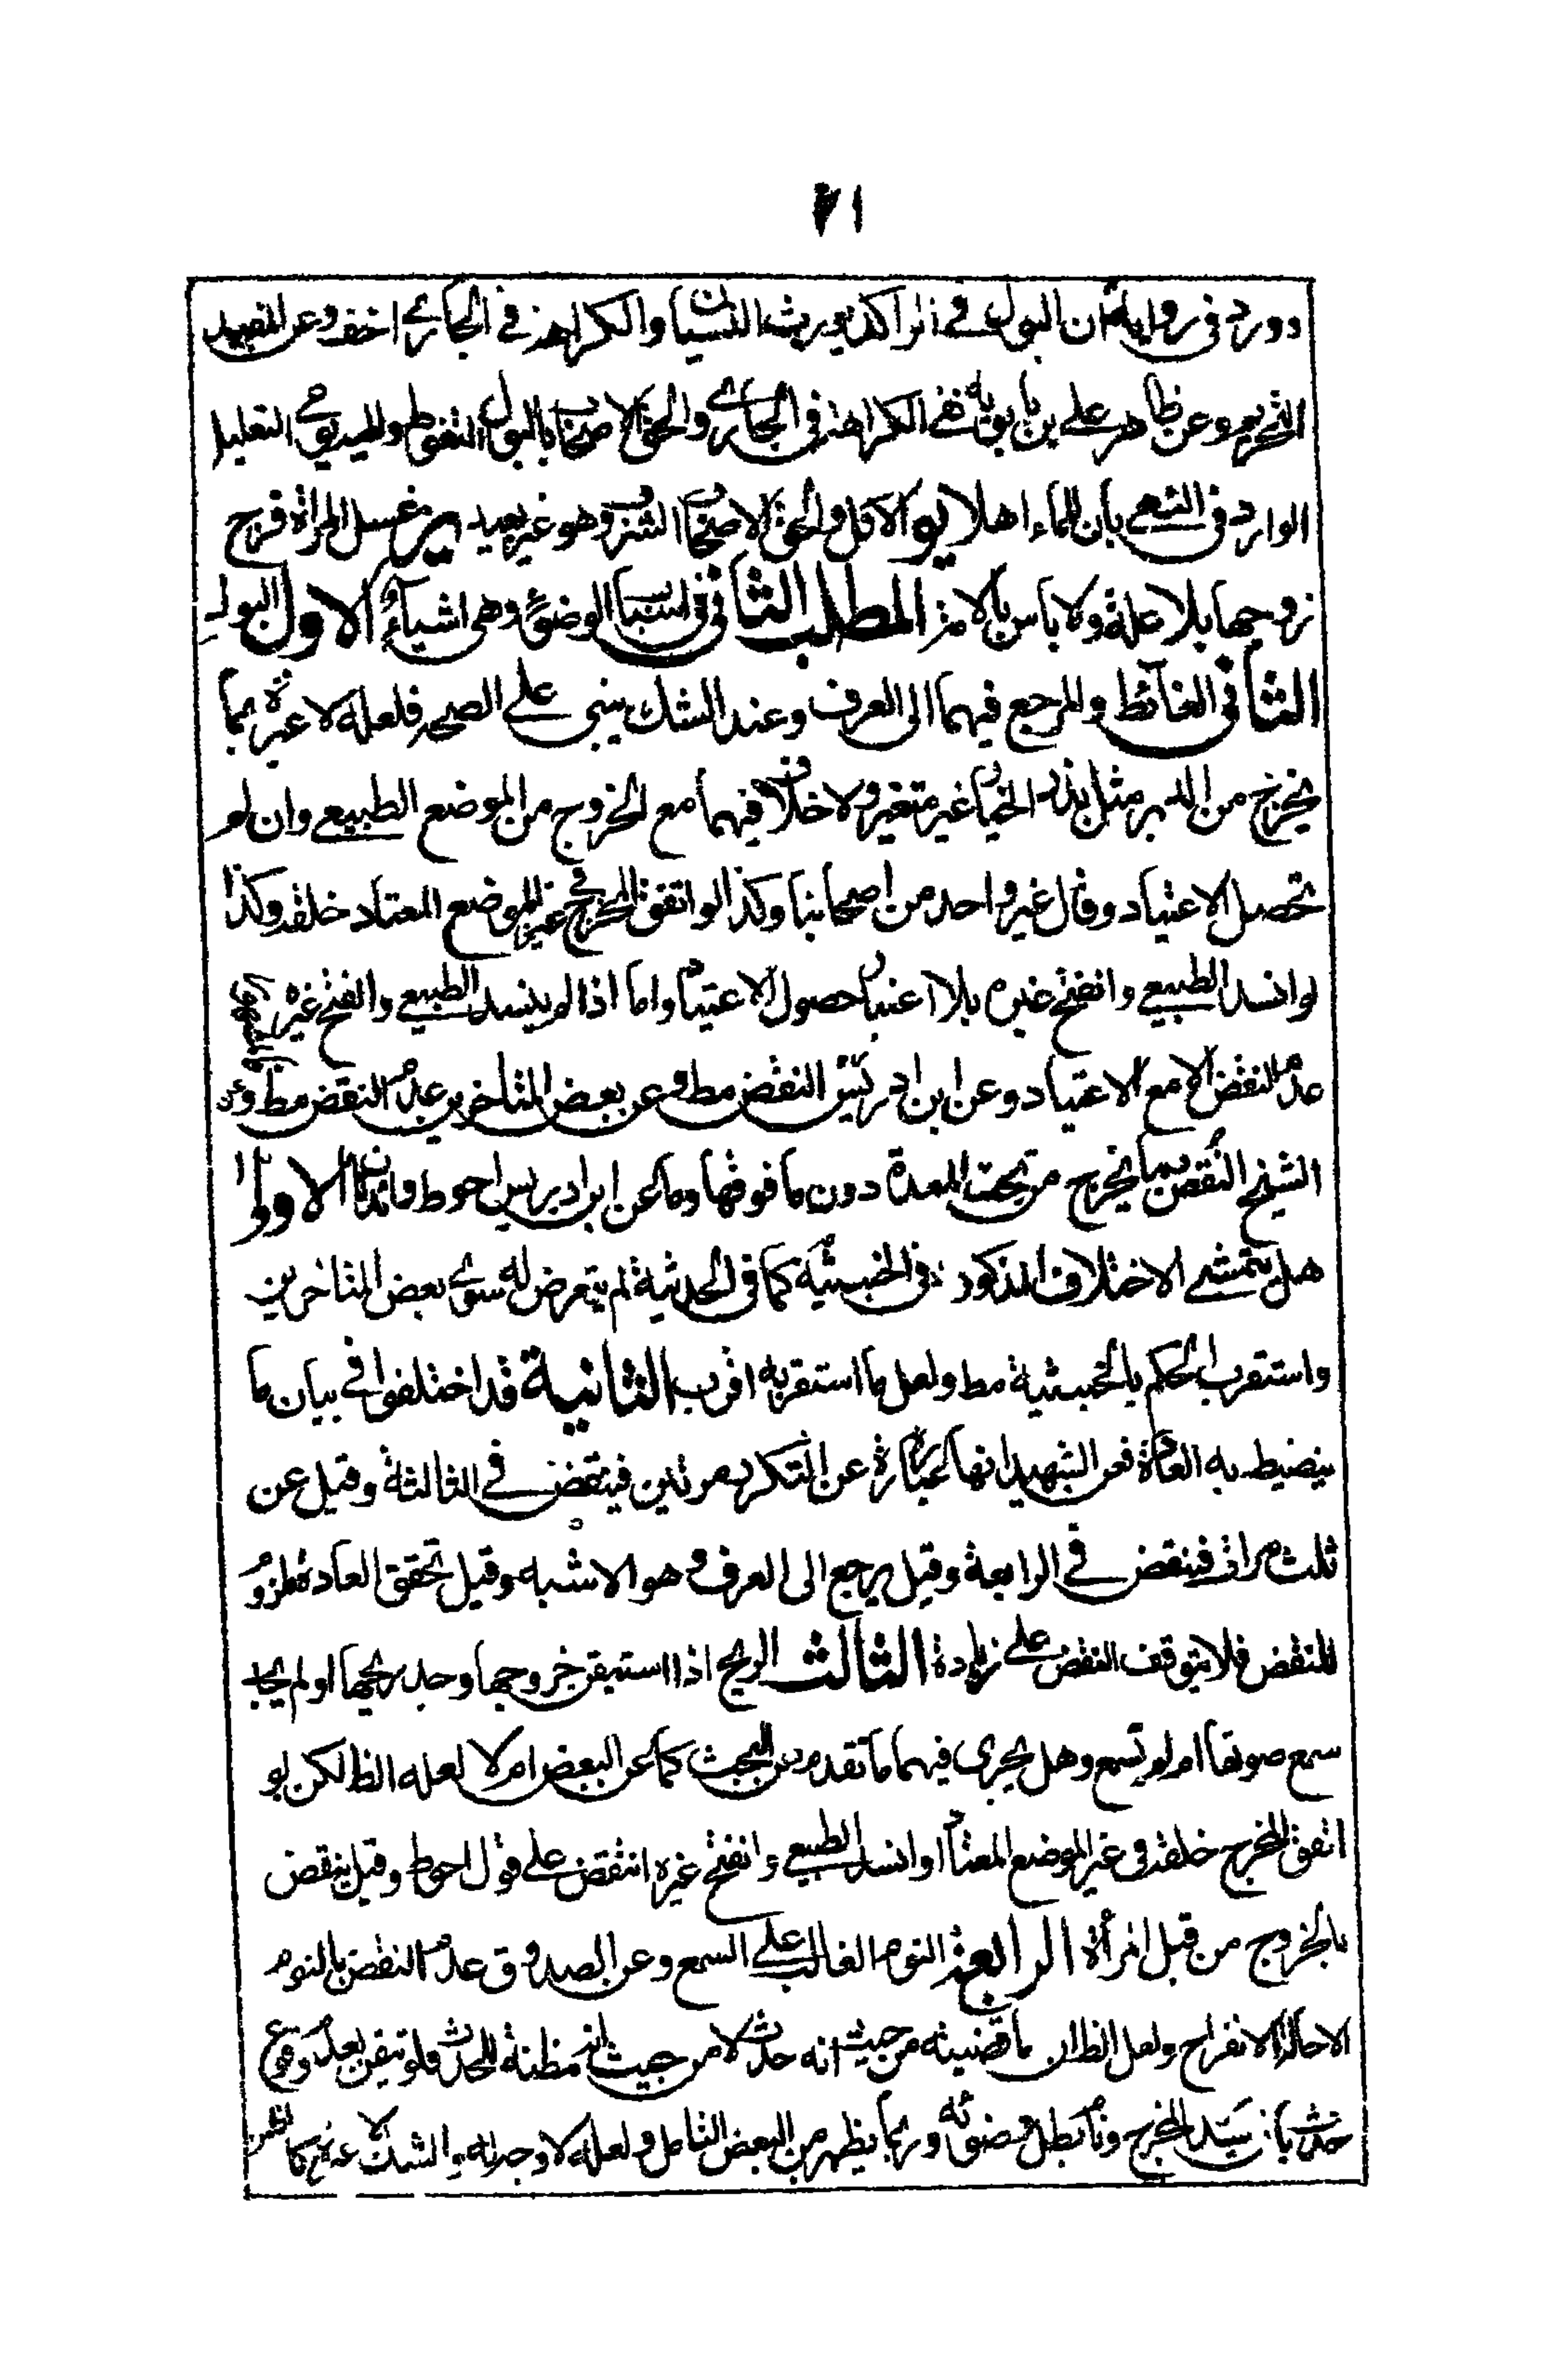 ٧١
دورد فى رواية ان البول فى الراكد يورث النسيان والكراهة فى الجارى اخف وعن المفيد
التحريم وعن ظاهر على بن بابويه نفى الكراهة فى الجارى والحق الاصحاب بالبول التغوط وللمديح التعليل
الوارد فى النهى بان للماء اهلا يؤ الاول والحق الاصحاب الشرب وهو غير بعيد غسل المراة فرج
زوجها بلا علة ولا باس بالامة المطلب الثانى فى اسباب الوضوء وهى اشياء الاول البول
الثانى الغائط والمرجع فيهما الى العرف وعند الشك يبنى على الصحه فلعله لا عبرة بما
يخرج من الدبر مثل بذر الخيار غير متغير ولا خلاف فيهما مع الخروج من الموضع الطبيعى وان لم
تحصل الاعتياد وقال غير واحد من اصحابنا وكذا لو اتفق المخرج غير الموضع المعتاد خلقه وكذا
لو انسد الطبيعى وانفتح غيره بلا اعتبار حصول الاعتياد واما اذا لم ينسد الطبيعى وانفتح غيره
عدم النقض الا مع الاعتياد وعن ابن ادريس النقض مط وعن بعض المتاخرين عدم النقض مط وعن
الشيخ النقض بما يخرج من تحت المعدة دون ما فوقها وما عن ابن ادريس احوط فائدتان الاولى
هل يتمشى الاختلاف المذكور فى الخبثية كما فى الحدثية لم يتعرض له سوى بعض المتاخرين
واستقرب الحكم بالخبثية مط ولعل ما استقربه اقرب الثانية قد اختلفوا فى بيان ما
ينضبط به العادة فعن الشهيد انها عبارة عن التكرر مرتين فينقض فى الثالثة وقيل عن
ثلث مرات فينقض فى الرابعة وقيل يرجع الى العرف وهو الاشبه وقيل تحقق العادة ملزوم
للنقض فلا يتوقف النقض على زيادة الثالث الريح اذا استيقن خروجها وجد ريحها او لم يجد
سمع صوتها ام لم يسمع وهل يجرى فيهما ما تقدم من البحث كما عن البعض ام لا لعله الظ لكن لو
اتفق المخرج خلقه فى غير الموضع المعتاد او انسد الطبيعى وانفتح غيره انتقض على قول احوط وقيل ينقض
بالخروج من قبل امرأة الرابعة النوم الغالب على السمع وعن الصدوق عدم النقض بالنوم
الا حالة الانفراج ولعل الظ ان ناقضيته من حيث انه حدث لا من حيث انه مظنة للحدث فلو تيقن بعدم وقوع
حدث بان يسد المخرج ونام بطل وضوئه وربما يظهر من البعض التامل ولعله لا وجه له والشك لا عبرة